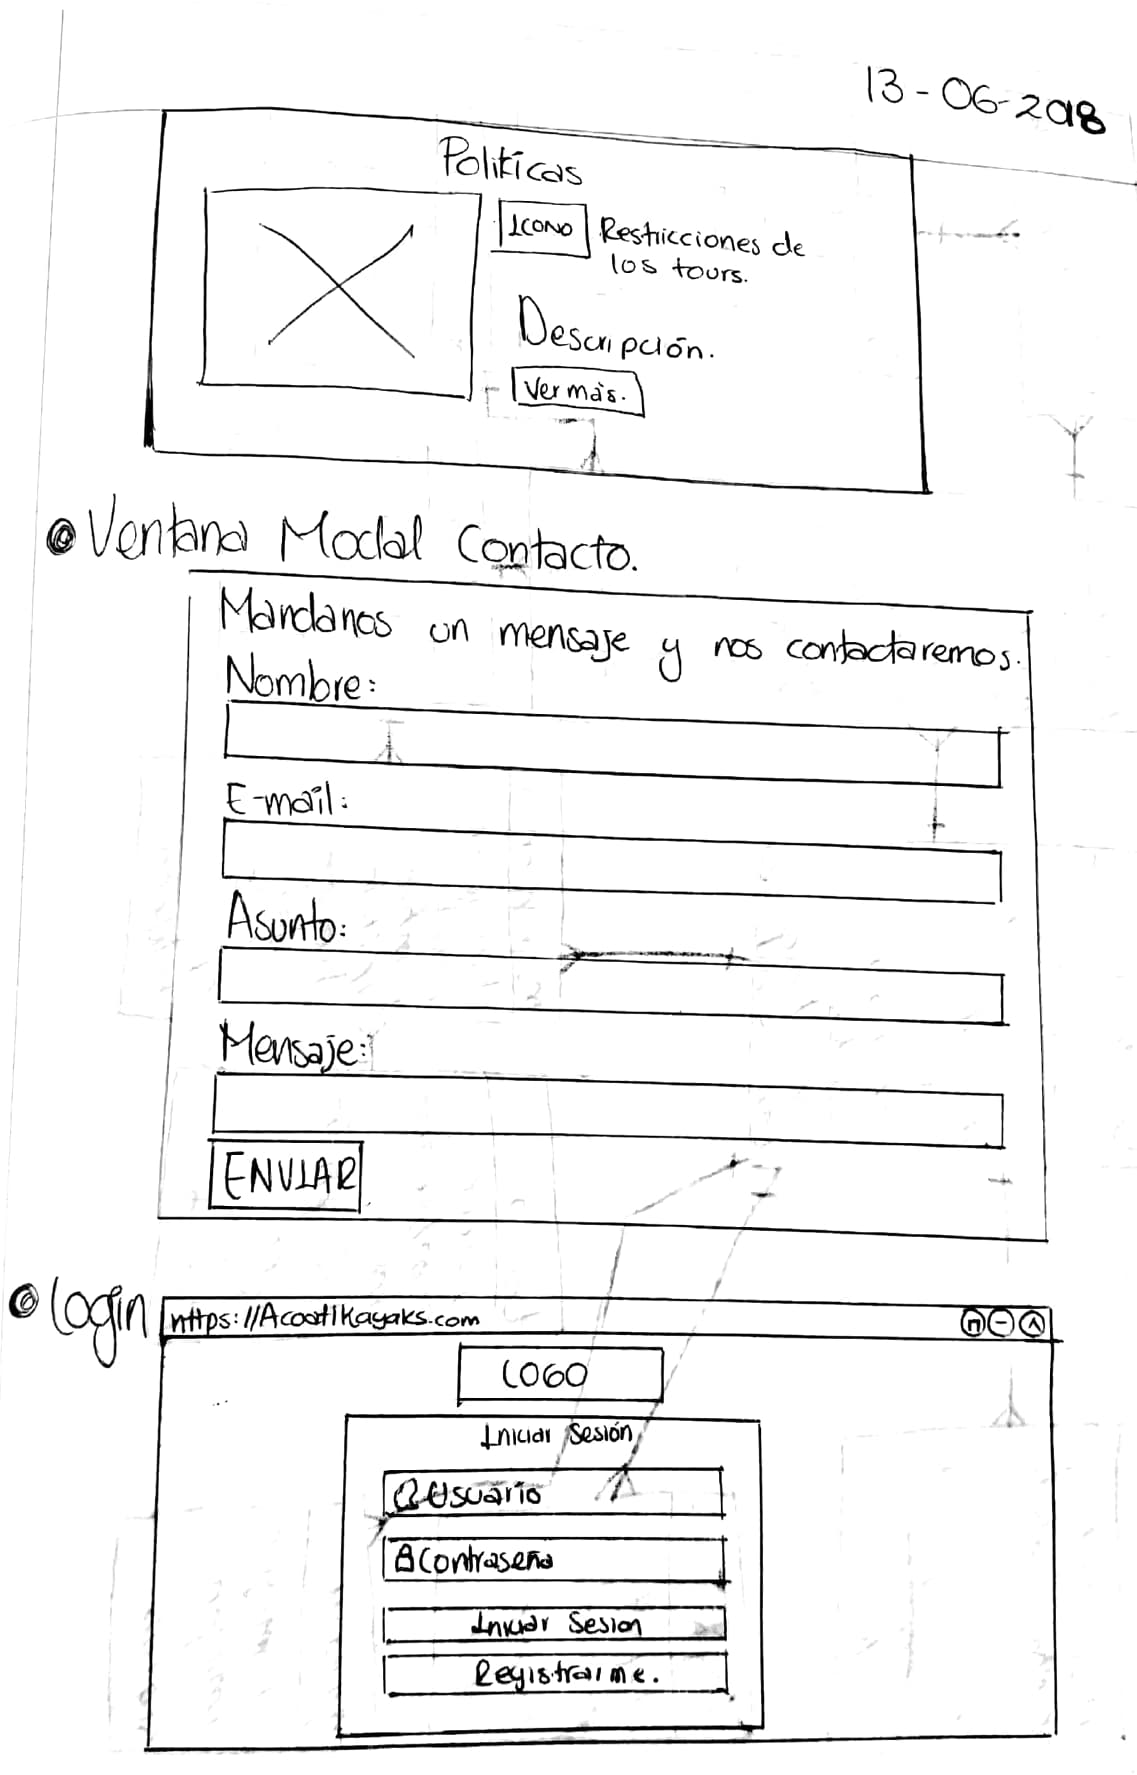 13-06-2018
Politícas
ICONO
Restricciones de
los tours.
Descripción.
Ver más.
Ventana Modal Contacto.
Mandanos un mensaje y nos contactaremos.
Nombre:
E-mail:
Asunto:
Mensaje:
ENVIAR
Login
https://AcoatlKayaks.com
LOGO
Iniciar Sesión
Usuario
Contraseña
Iniciar Sesion
Registrarme.